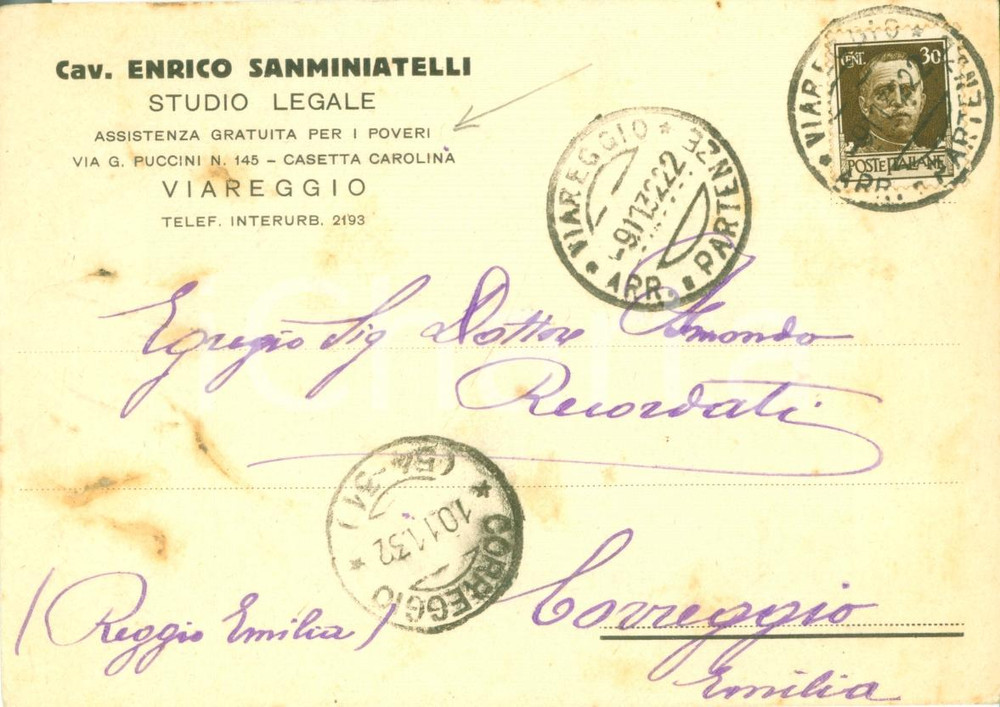 Cav. ENRICO SANMINIATELLI
STUDIO LEGALE
ASSISTENZA GRATUITA PER I POVERI
VIA G. PUCCINI N. 145 – CASETTA CAROLINA
VIAREGGIO
TELEF. INTERURB. 2193
CENT. 30
POSTE ITALIANE
* VIAREGGIO * PARTENZE
ARR.
VIAREGGIO * PARTENZE
-9.11.32 22
ARR.
Egregio Sig Dottore Amondo
Recordati
* CORREGGIO *
10.11.32
(Reggio Emilia) Correggio
Emilia